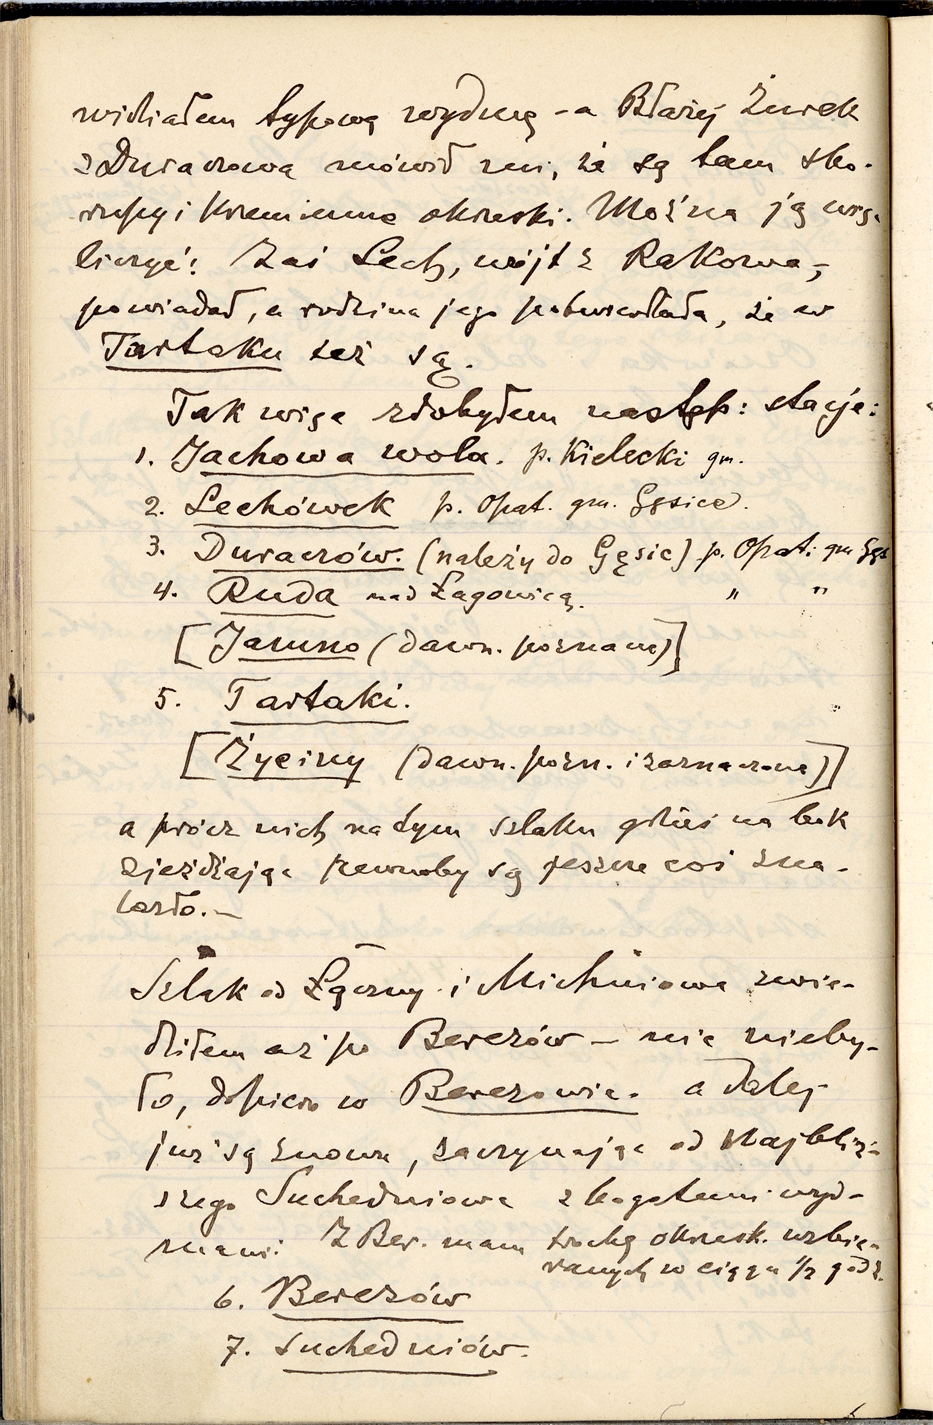 widziałem typową wydmę - a Błażej Żurek
z Duraczowa mówił mi, że są tam sko-
rupy i krzemienne okrzeski. Można ją wy-
liczyć! Zaś Lech, wójt z Rakowa,
powiadał, a rodzina jego potwierdzała, że w
Tartaku też są.
Tak więc zdobyłem następ: stacje:
1. Jachowa wola. p. Kielecki gm.
2. Lechówek p. Opat. gm. Gęsice.
3. Duraczów. (należy do Gęsic) p. Opat. gm Gęs
4. Ruda nad Łagowicą. " "
[Jamno (dawn. poznane)]
5. Tartaki.
[Życiny (dawn. pozn. i zaznaczone)]
a prócz nich na tym szlaku gdzieś na bok
zjeżdżając pewnoby się jeszcze coś zna-
lazło.-
Szlak od Łączny i Michniowa zwie-
dziłem aż po Berezów - nic nieby-
ło, dopiero w Berezowie. a dalej
już są znowu, zaczynając od najbliż-
szego Suchedniowa z bogatemi wyd-
mami. Z Ber. mam trochę okrzesk. uzbie-
ranych w ciągu 1/2 godz.
6. Berezów
7. Suchedniów.